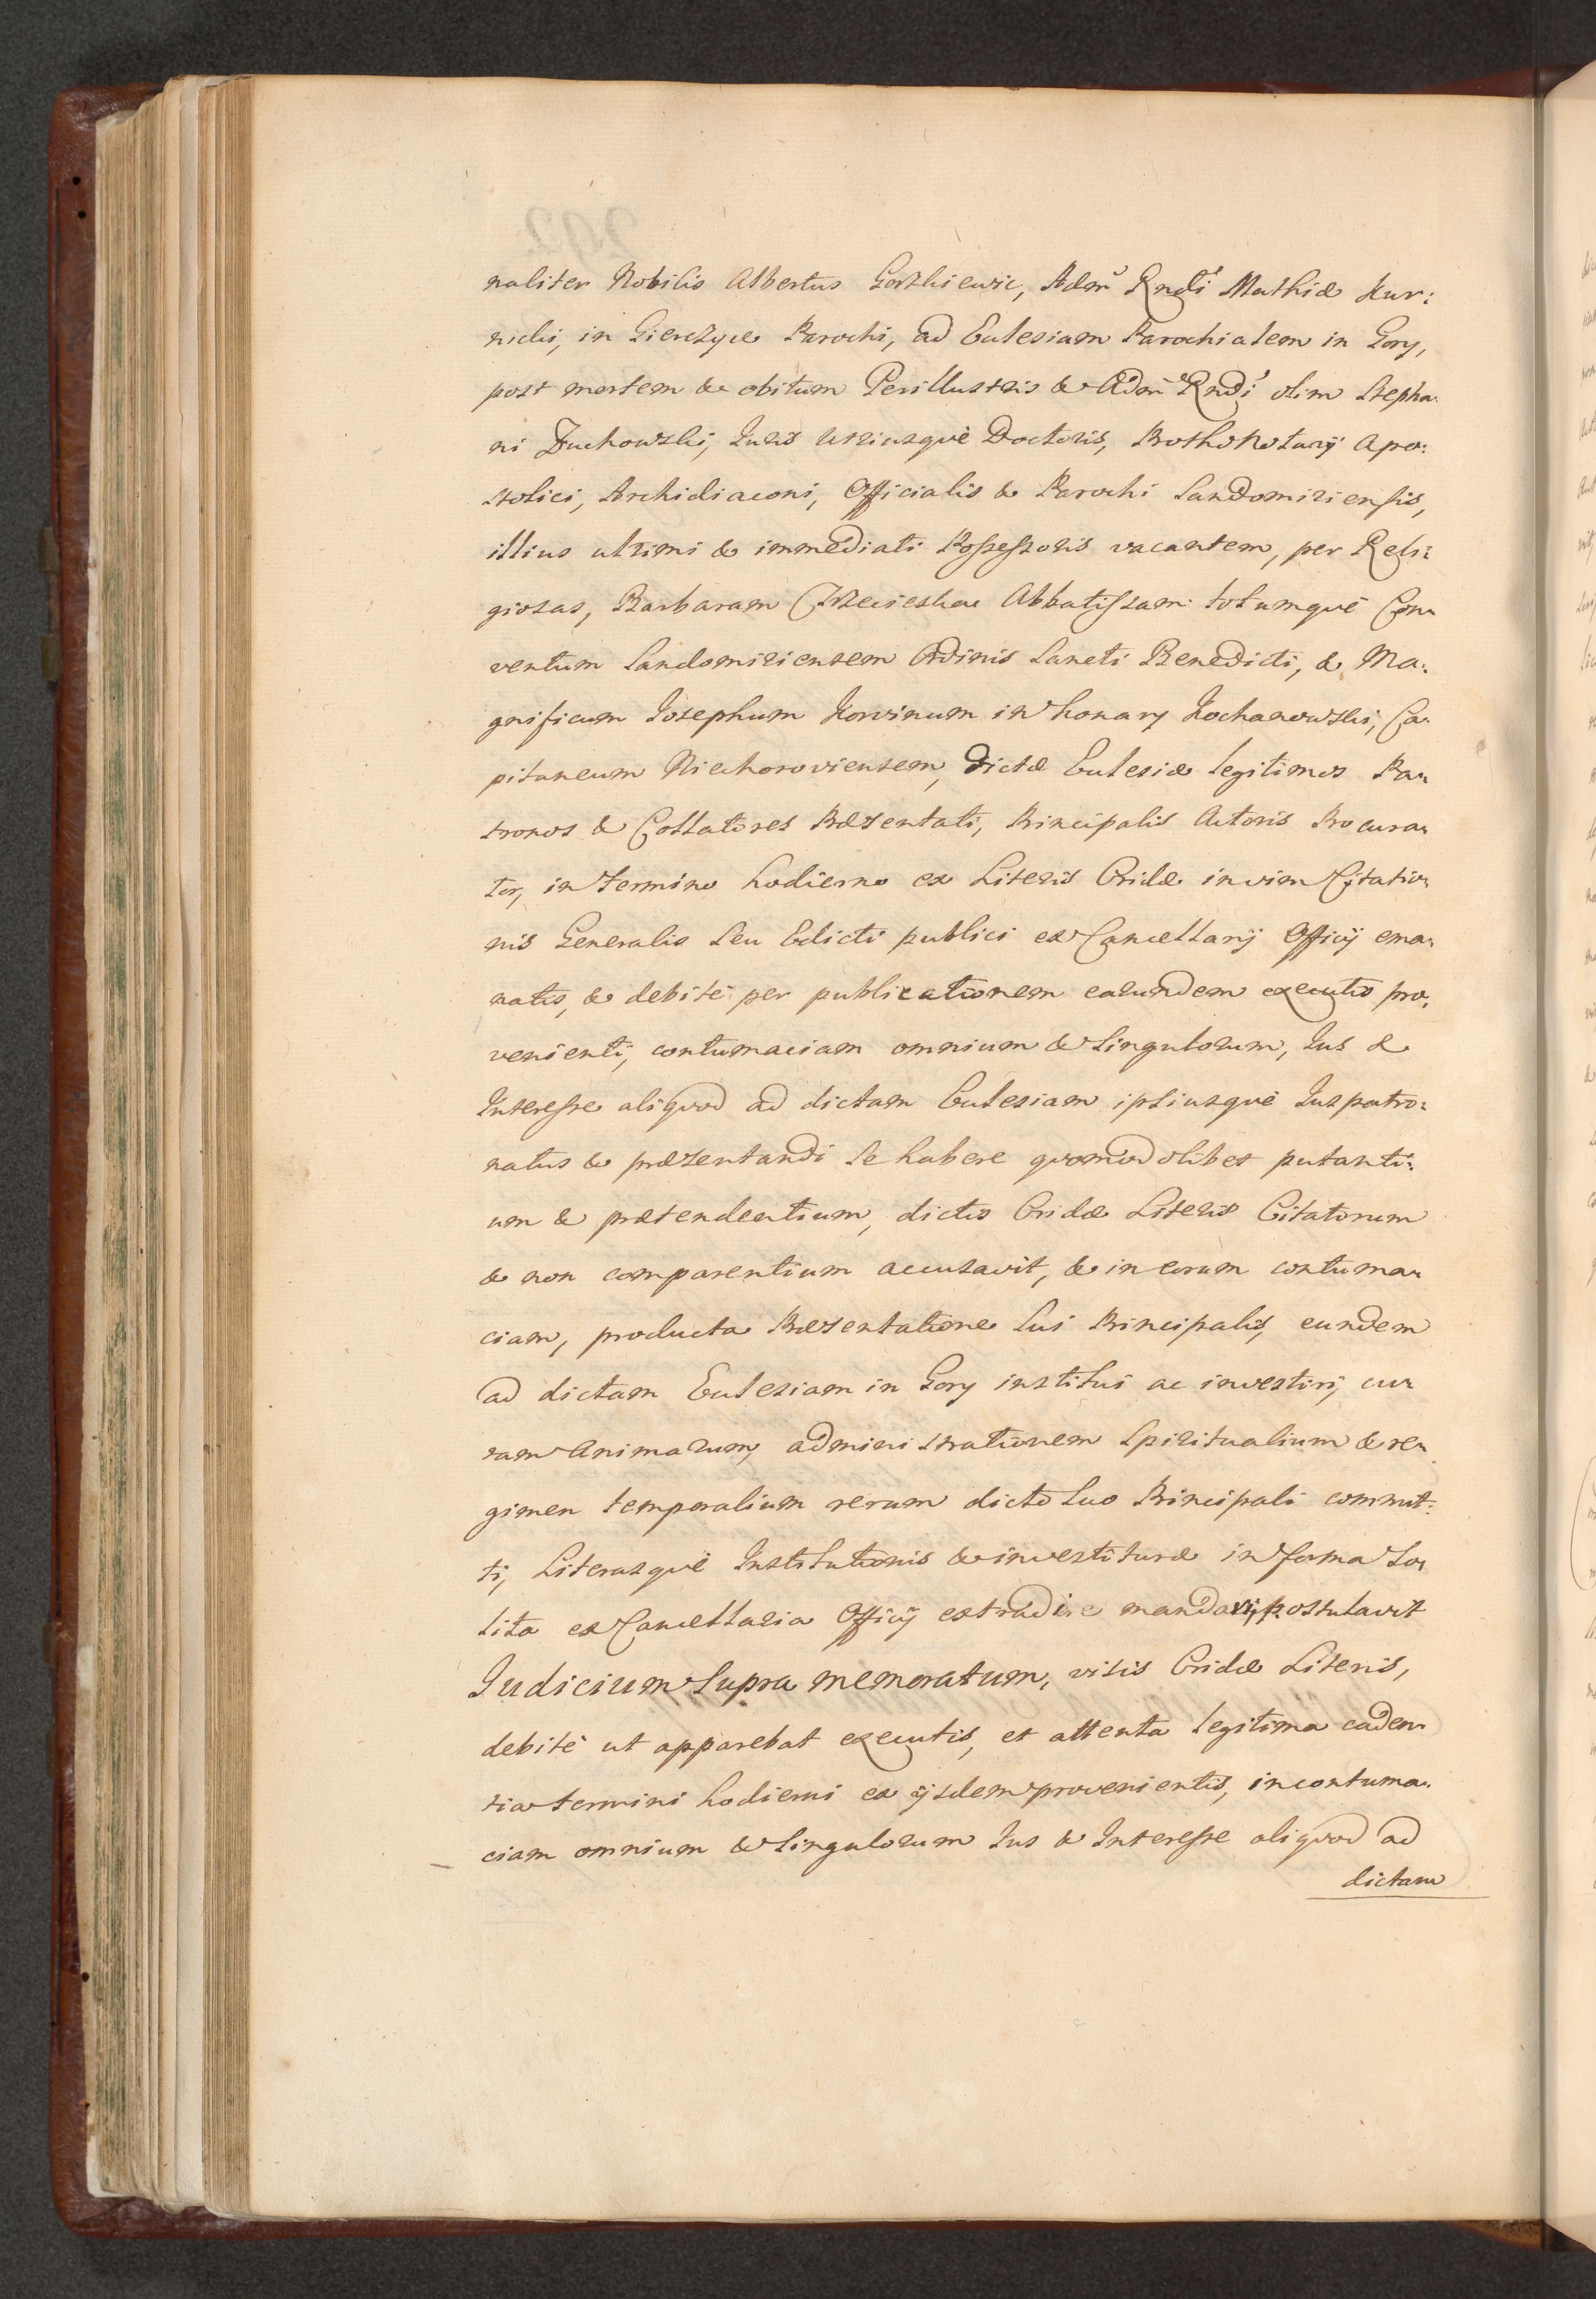 naliter Nobilis Albertus Gorzkiewic, Admˢ Rndi Mathiæ Kur:
nicki, in Gierczyce Parochi, ad Eculesiam Parochialem in Gory,
post mortem & obitum Perillustris & Adm Rndi olim Stepha:
ni Zuchowski, Juris Utriusqve Doctoris, ProthoNotarij Apo:
stolici, Archidiaconi, Officialis & Parochi Sandomiriensis,
illius ultimi & immediati Possessoris vacantem, per Reli:
giosas, Barbaram Abbatissam totumqve Con:
ventum Sandomiriensem Ordinis Sancti Benedicti, & Ma:
gnificum Josephum Korvinum in Konary Kochanowski, Ca:
pitaneum Niechoroviensem, dictæ Eculesiæ legitimos Pa:
tronos & Collatores Præsentati, Principalis Actoris Procura:
tor, in termino hodierno ex Literis Cridæ in vim Citatio:
nis Generalis Seu Edicti publici ex Cancellarij Officij ema:
natis, & debitè per publicationem earundem executis pro:
venienti, contumaciam omnium & Singulorum, Jus &
Interesse aliqvod ad dictam Eculesiam ipsiusqve Juspatro:
natus & præsentandi Se habere qvomodolibet putanti:
um & prætendentium, dictis Cridæ Literis Citatorum
& non comparentium accusavit, & in eorum contuma:
ciam, producta Præsentatione Sui Principalis, eundem
ad dictam Eculesiam in Gory institui ac investiri, cu:
ram Animarum, administrationem Spiritualium & re:
gimen temporalium rerum dicto Suo Principali commit:
ti, Literasqve Institutionis & investituræ in forma So:
lita ex Cancellaria Officij extradi mandari, postulavit
Judicium Supra memoratum, visis Cridæ Literis,
debitè ut apparebat executis, et attenta legitima caden:
tia termini hodierni ex ijsdem provenientis, in contuma:
ciam omnium & Singulorum Jus & Interesse aliqvod ad
dictam